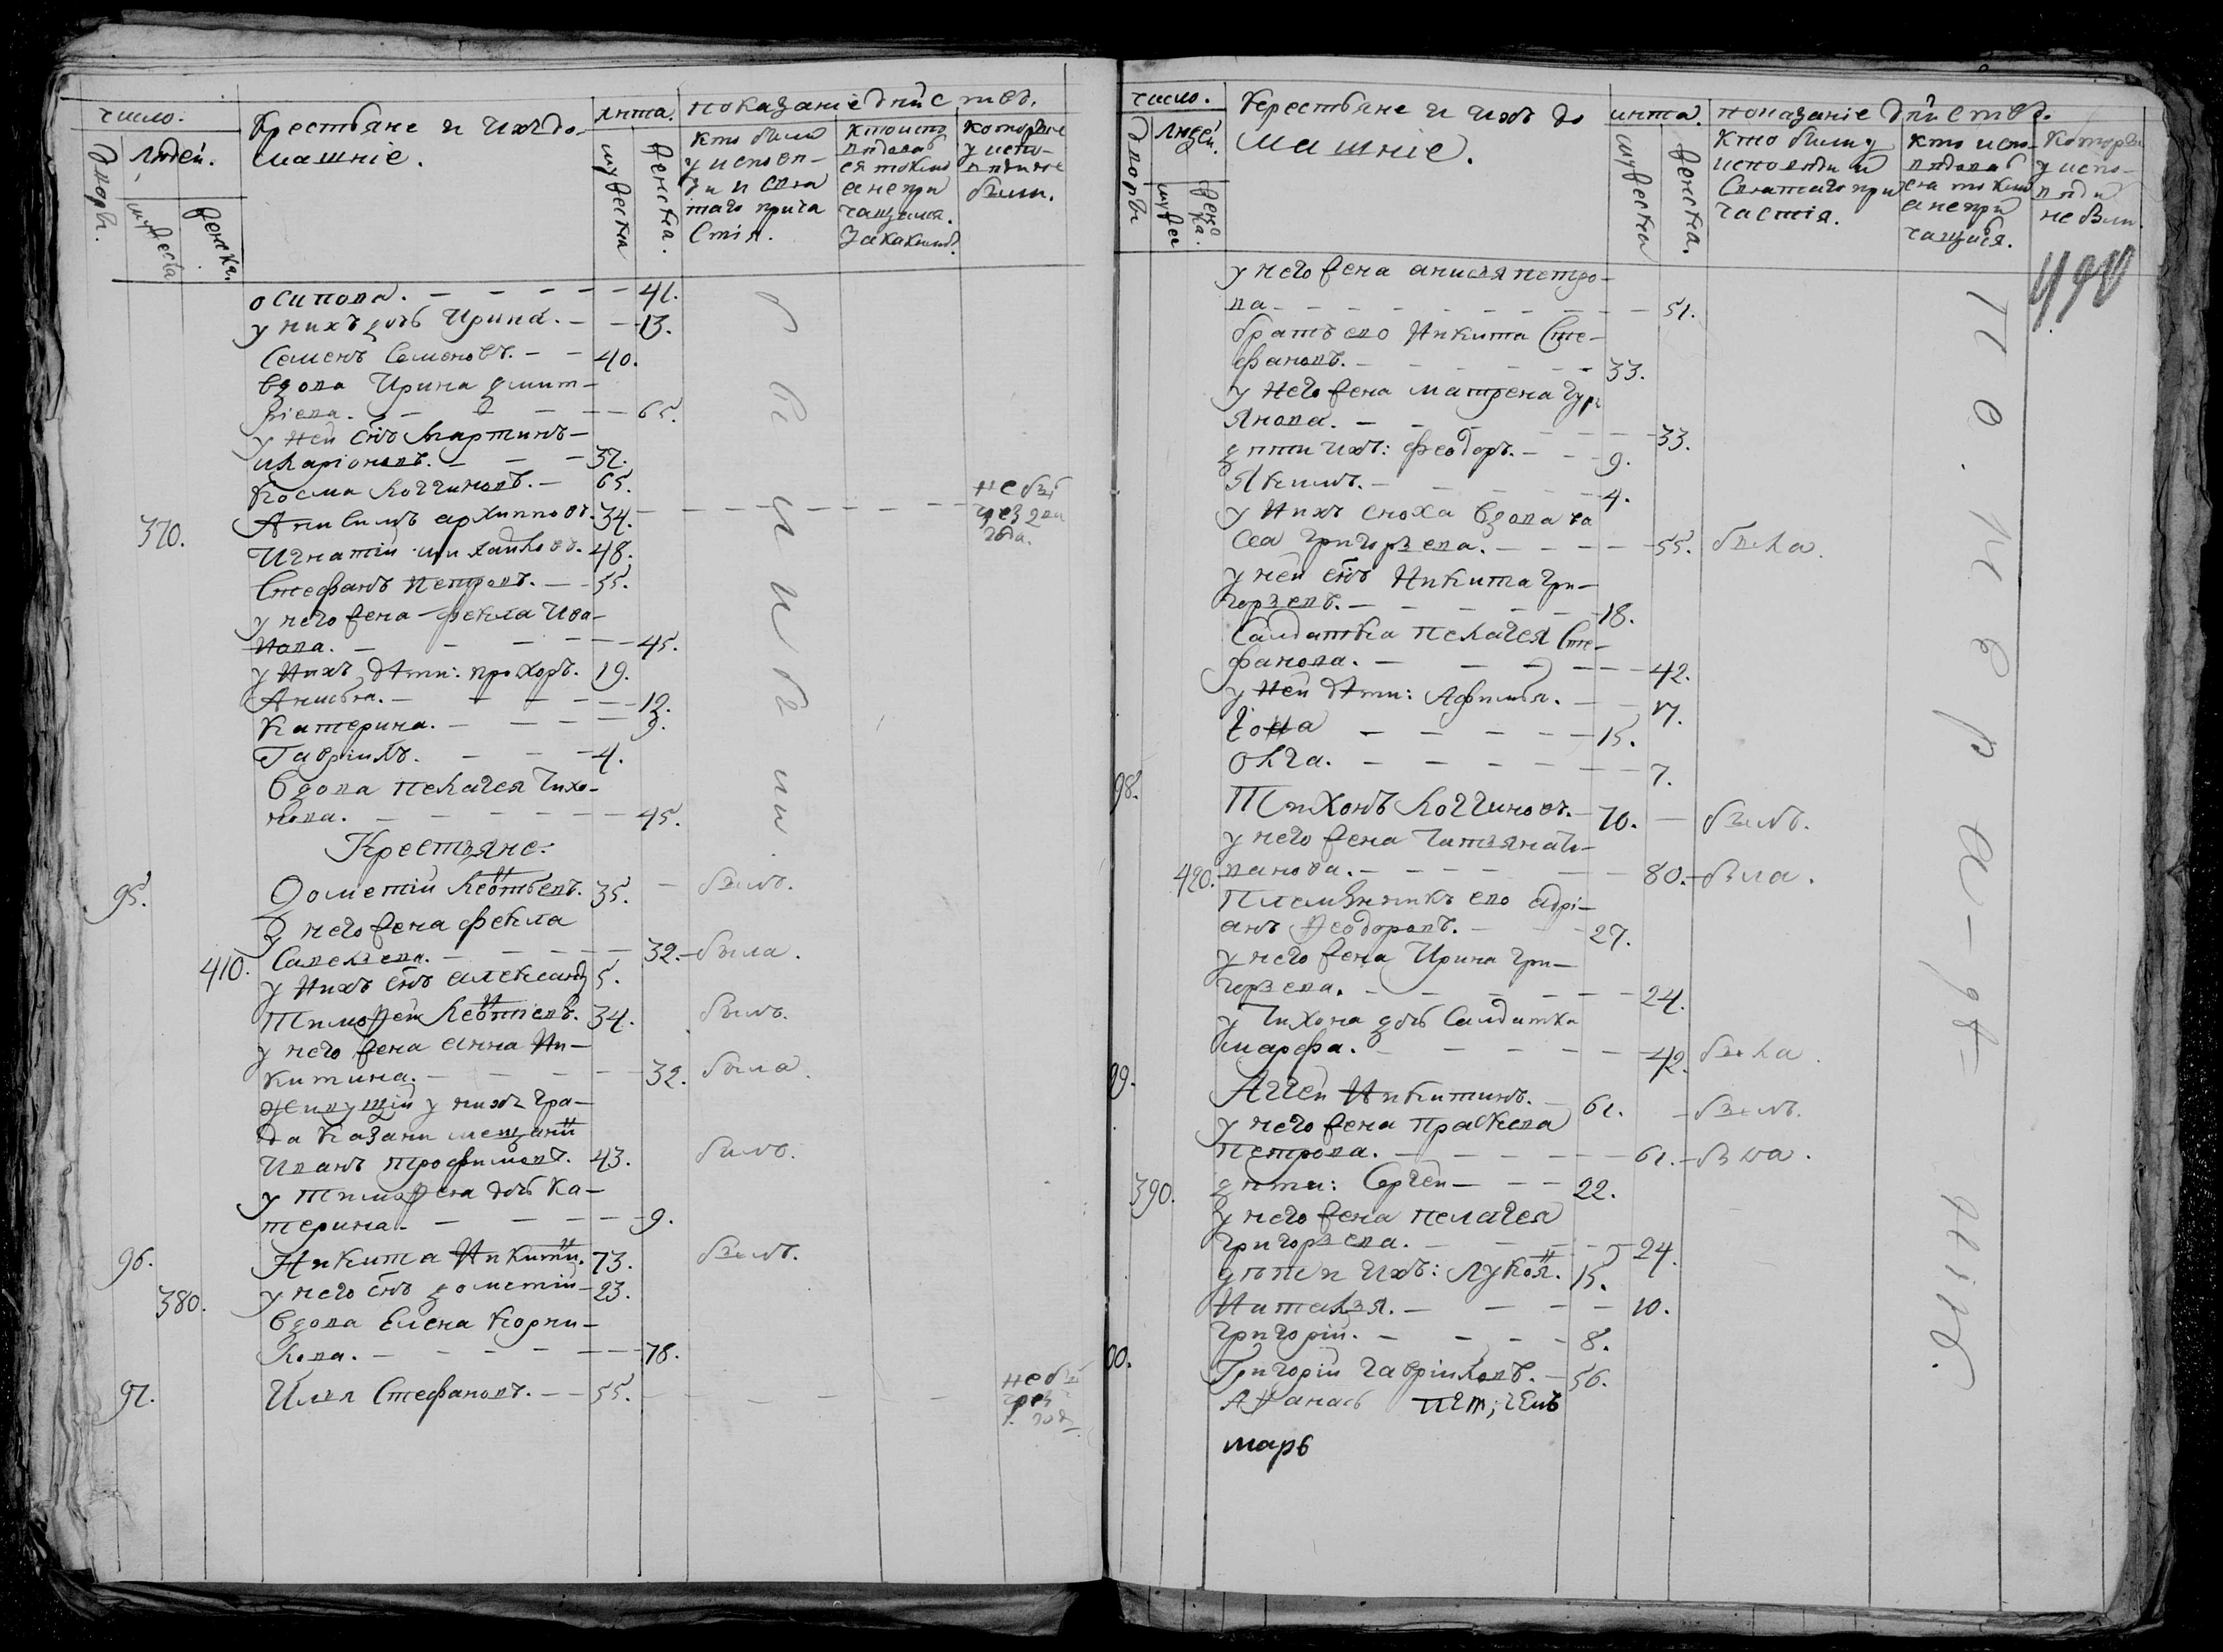 число.
Крестьяне и ихъ до-
лѣта.
показаніе дѣйствъ.
дворы.
людей.
машніе.
мужеска
женска.
мужеска
женска.
кто были
у исповѣ-
ди и свя
таго прича
стія.
кто испо
вѣдовав
ся токмо
а не при
чащался.
за какимъ
которые
у испо-
вѣди не
были.
осипова. 41.
у нихъ дочь Ирина. 13.
Семенъ Семеновъ. 40.
вдова Ирина дмит-
ріева. 65.
у ней снъ Мартинъ-
иларіоновъ. 37.
Косма логгиновъ. 65.
370. Анисимъ архиповъ. 34. не бы
чрез два
года.
Игнатій михайловъ. 48.
Стефанъ Петровъ. 55.
у него жена фекла Ива-
нова. 45.
у нихъ дѣти: прохоръ. 19.
Анисья. 12.
Катерина. 9.
Гавріилъ. 4.
вдова пелагея тихо-
нова. 45.
Крестьяне:
95. Дометій Леонтьевъ. 35. былъ.
у него жена фекла
410. Савельева. 32. была.
у нихъ снъ александ 5.
Тимофей Леонтіевъ. 34. былъ.
у него жена анна Ни-
китина. 32. была.
живущій у нихъ гра-
да Казани мещани
Иванъ трофимовъ. 43. былъ.
у тимофея дочь ка-
терина. 9.
96. Никита Никити. 73. былъ.
380. у него снъ дометій 23.
вдова Елена корни-
лова. 78.
97. Илья Стефановъ. 55. не бы
чрез
1. год.
число.
Крестьяне и ихъ до
лѣта.
показаніе дѣйствъ.
дворы
людей.
машніе.
муже
женс
ка.
мужеска
женска.
кто были у
исповѣди и
святаго при
частія.
кто испо-
вѣдова
ся токмо
а не при
чащайся.
которы
у испо-
вѣди
не были.
490
у него жена анисья петро-
ва 51.
братъ ево Никита Сте-
фановъ. 33.
у него жена матрена гур
янова. 33.
дѣти ихъ: феодоръ. 9.
Якимъ. 4.
у нихъ сноха вдова va
са григорьева. 55. была.
у ней снъ Никита гри-
горьевъ. 18.
Салдатка пелагея Сте-
фанова. 42.
у ней дѣти: Афимья. 17.
Iона 15.
ольга. 7.
98. Тихонъ Логгиновъ. 70. былъ.
у него жена татьяна
420. ванова. 80. была.
племянникъ ево адрі-
анъ Феодоровъ. 27.
у него жена Ирина гри-
горьева. 24.
у тихона дочь Салдатка
марфа. 42. была.
99. Аггей Никитинъ. 61. былъ.
у него жена прасковя
петрова. 61. была.
390. дѣти: Сергей 22.
у него жена пелагея
григорьева. 24.
дѣти ихъ: Лукоя. 15.
Наталья. 10.
григорій. 8.
00. Григорій гавріиловъ. 56.